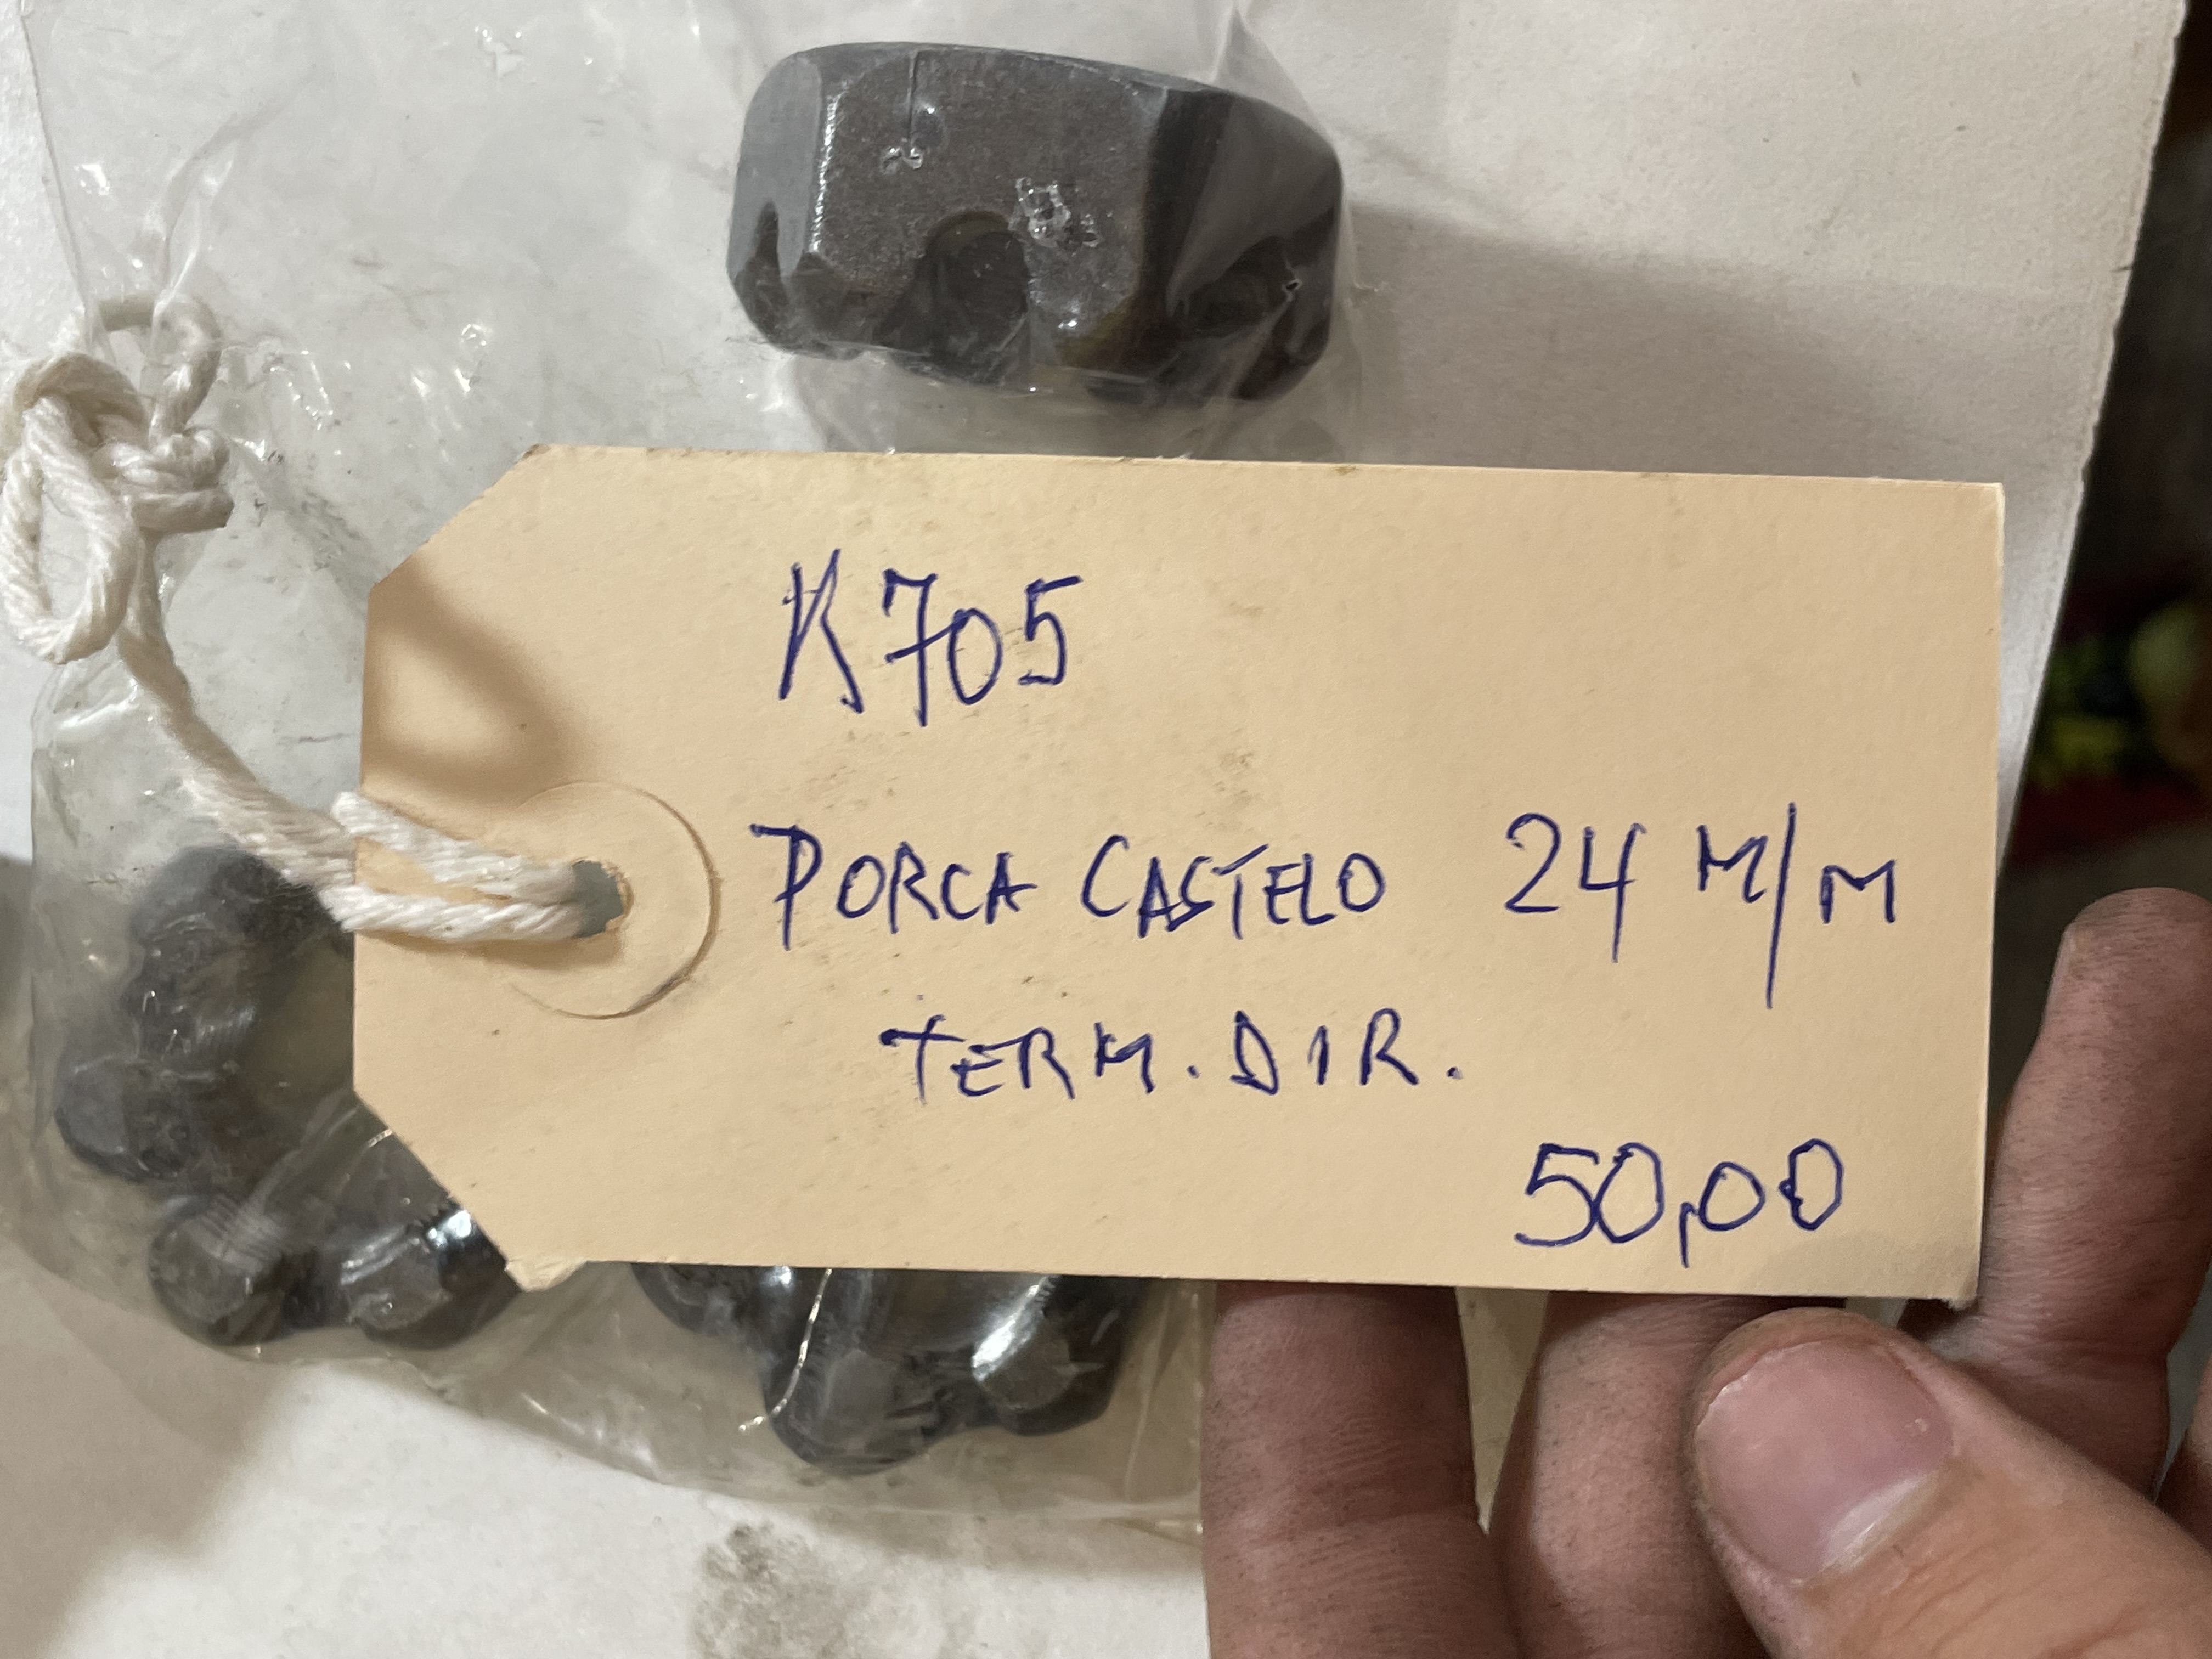 K705
PORCA CASTELO 24 M/M
TERM. DIR.
50,00